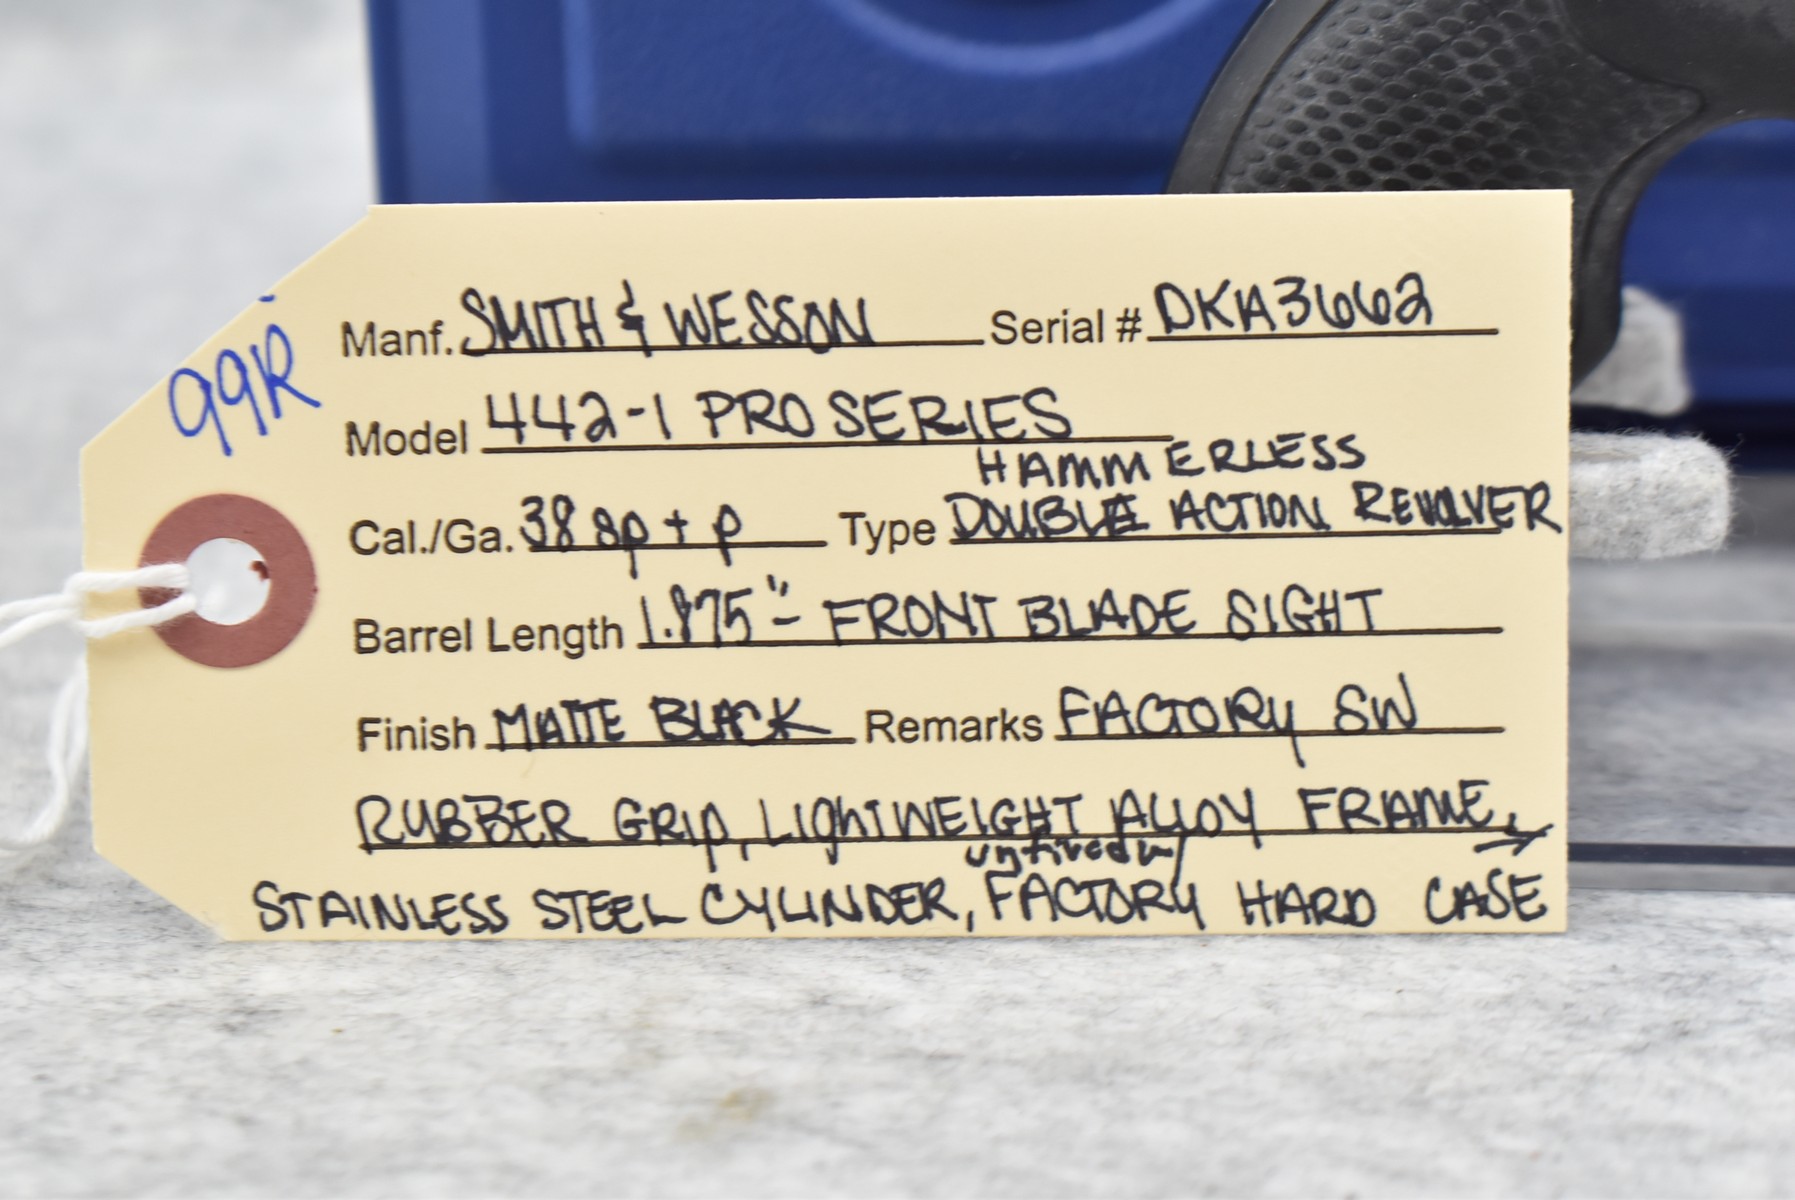 99R
Manf. SMITH & WESSON Serial # DKA3662
Model 442-1 PRO SERIES
HAMMERLESS
Cal./Ga. 38 sp + p Type DOUBLE ACTION REVOLVER
Barrel Length 1.875" - FRONT BLADE SIGHT
Finish MATTE BLACK Remarks FACTORY SW
RUBBER GRIP, LIGHTWEIGHT ALLOY FRAME, →
unfired w/
STAINLESS STEEL CYLINDER, FACTORY HARD CASE